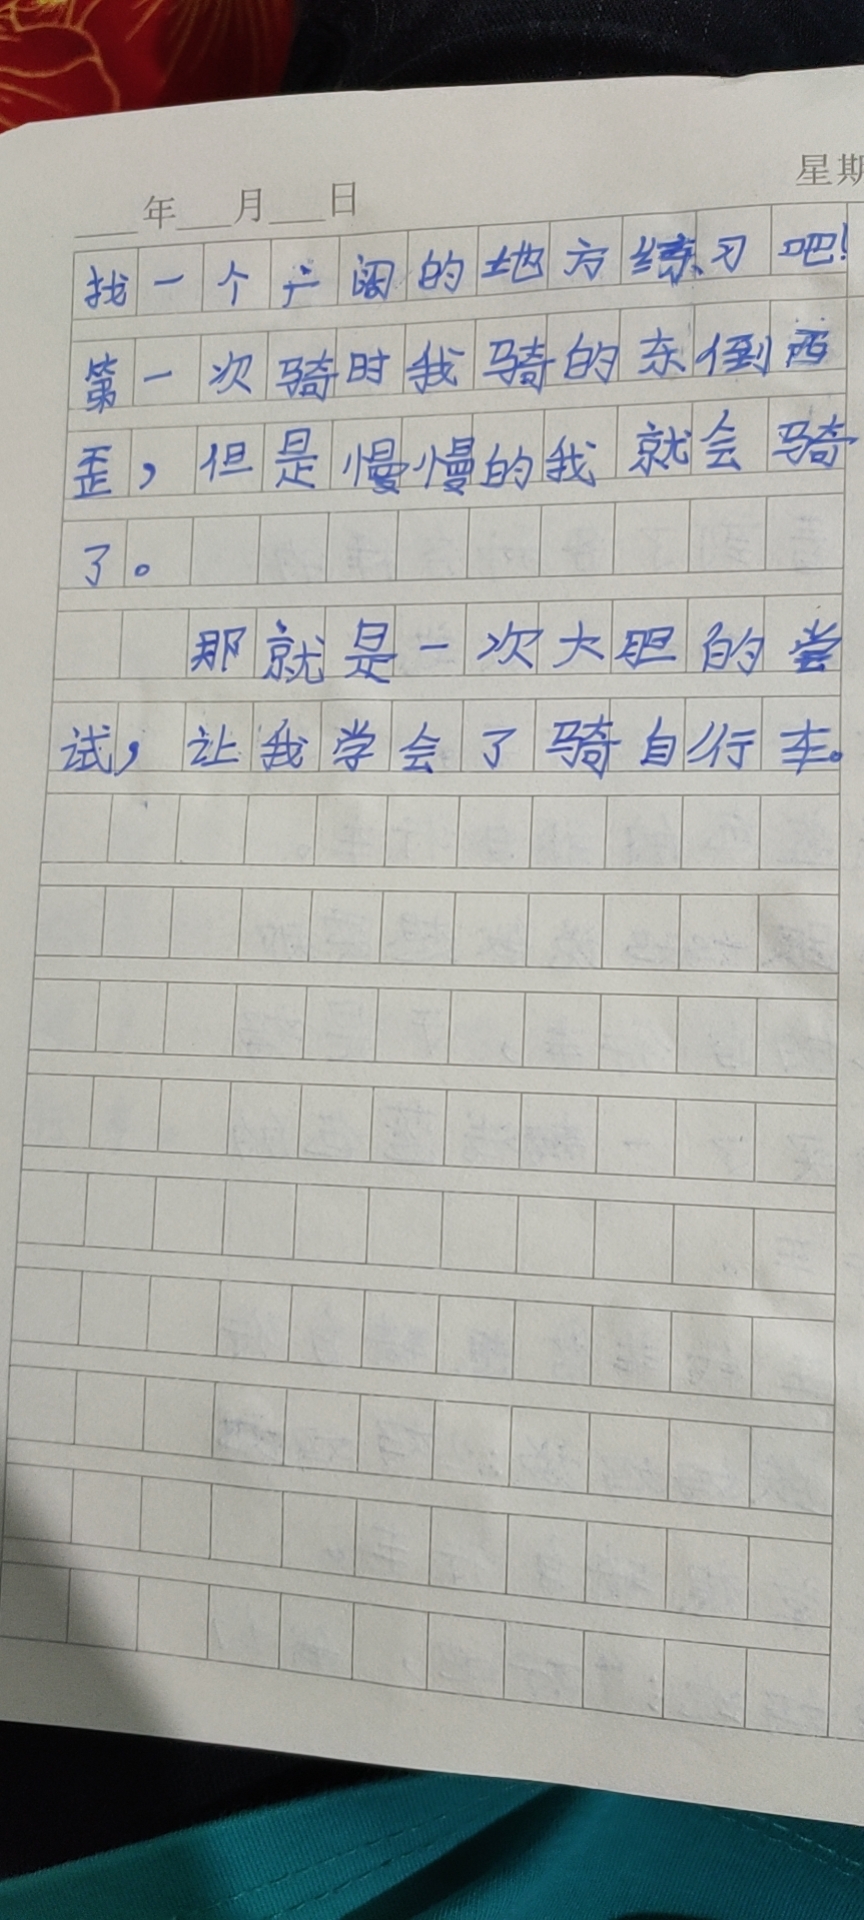 年 月 日 星期
找一个广阔的地方练习吧!
第一次骑时我骑的东倒西
歪，但是慢慢的我就会骑
了。
那就是一次大胆的尝
试，让我学会了骑自行车。